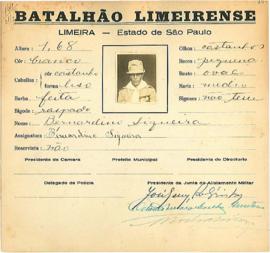 BATALHÃO LIMEIRENSE
LIMEIRA — Estado de São Paulo
Altura: 1,68
Olhos: castanhos
Côr: branco
Bocca: pequena
Cabellos côr castanho
Rosto: oval
fórma: liso
Nariz: medio
Barba: feita
Signaes: não tem
Bigode: raspado
Nome: Bernardino Siqueira
Assignatura Bernardino Siqueira
Reservista não
Presidente da Camara
Prefeito Municipal
Presidente do Directorio
Delegado de Policia
Presidente da Junta de Alistamento Militar